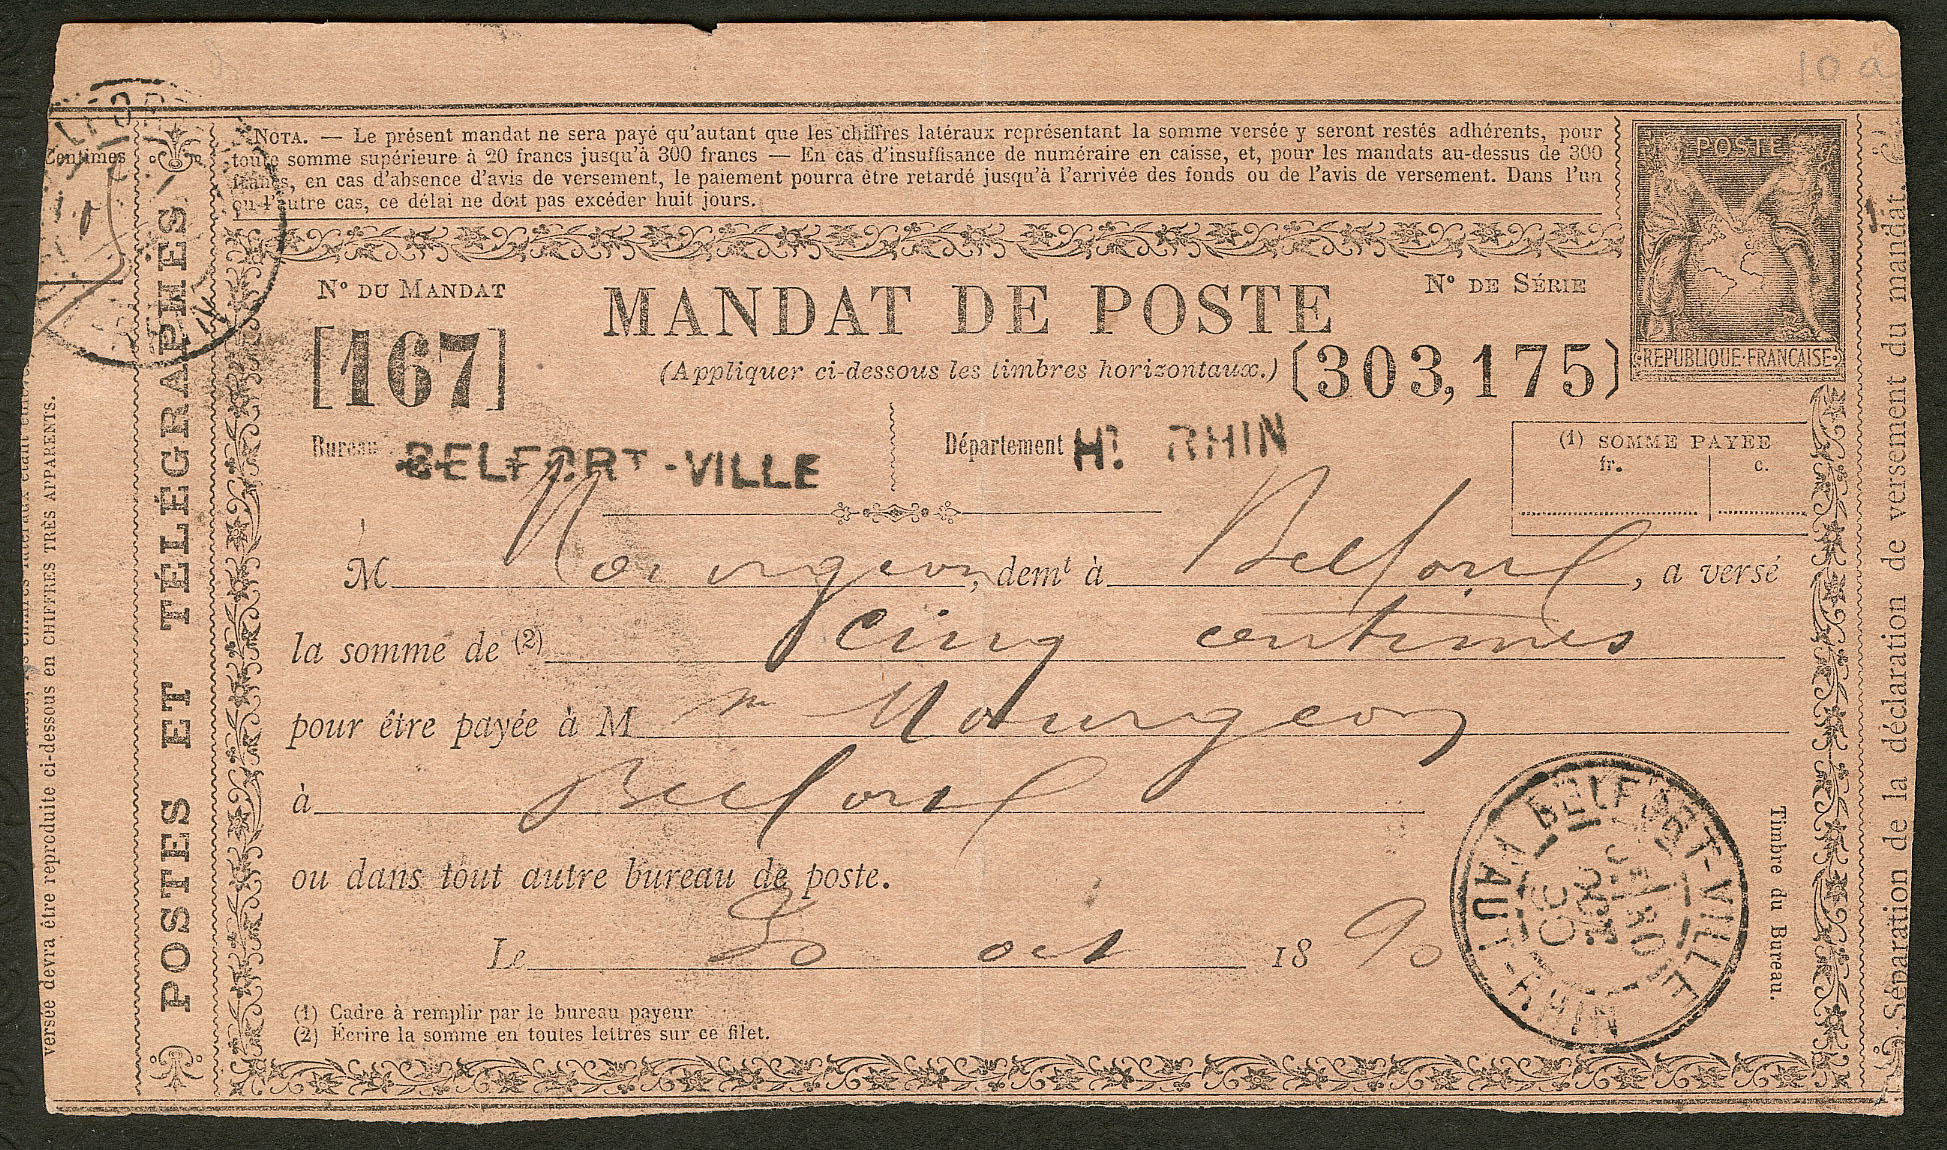 10 a
NOTA. — Le présent mandat ne sera payé qu'autant que les chiffres latéraux représentant la somme versée y seront restés adhérents, pour
toute somme supérieure à 20 francs jusqu'à 300 francs — En cas d'insuffisance de numéraire en caisse, et, pour les mandats au-dessus de 300
francs, en cas d'absence d'avis de versement, le paiement pourra être retardé jusqu'à l'arrivée des fonds ou de l'avis de versement. Dans l'un
ou l'autre cas, ce délai ne doit pas excéder huit jours.
POSTE
REPUBLIQUE·FRANCAISE
Centimes
N° DU MANDAT
MANDAT DE POSTE
N° DE SÉRIE
[167]
(Appliquer ci-dessous les timbres horizontaux.)
(303,175)
Bureau BELFORT-VILLE
Département HT RHIN
(1) SOMME PAYÉE
fr. c.
M Mourgeon, demt à Belfort, a versé
la somme de (2) cinq centimes
pour être payée à M m Mourgeon
à Belfort
ou dans tout autre bureau de poste.
Le 30 oct 1890
BELFORT-VILLE
HAUT-RHIN
30
OCT
90
Timbre du Bureau.
(1) Cadre à remplir par le bureau payeur
(2) Écrire la somme en toutes lettres sur ce filet.
POSTES ET TÉLÉGRAPHES
versée devra être reproduite ci-dessous en CHIFFRES TRÈS APPARENTS.
Séparation de la déclaration de versement du mandat.